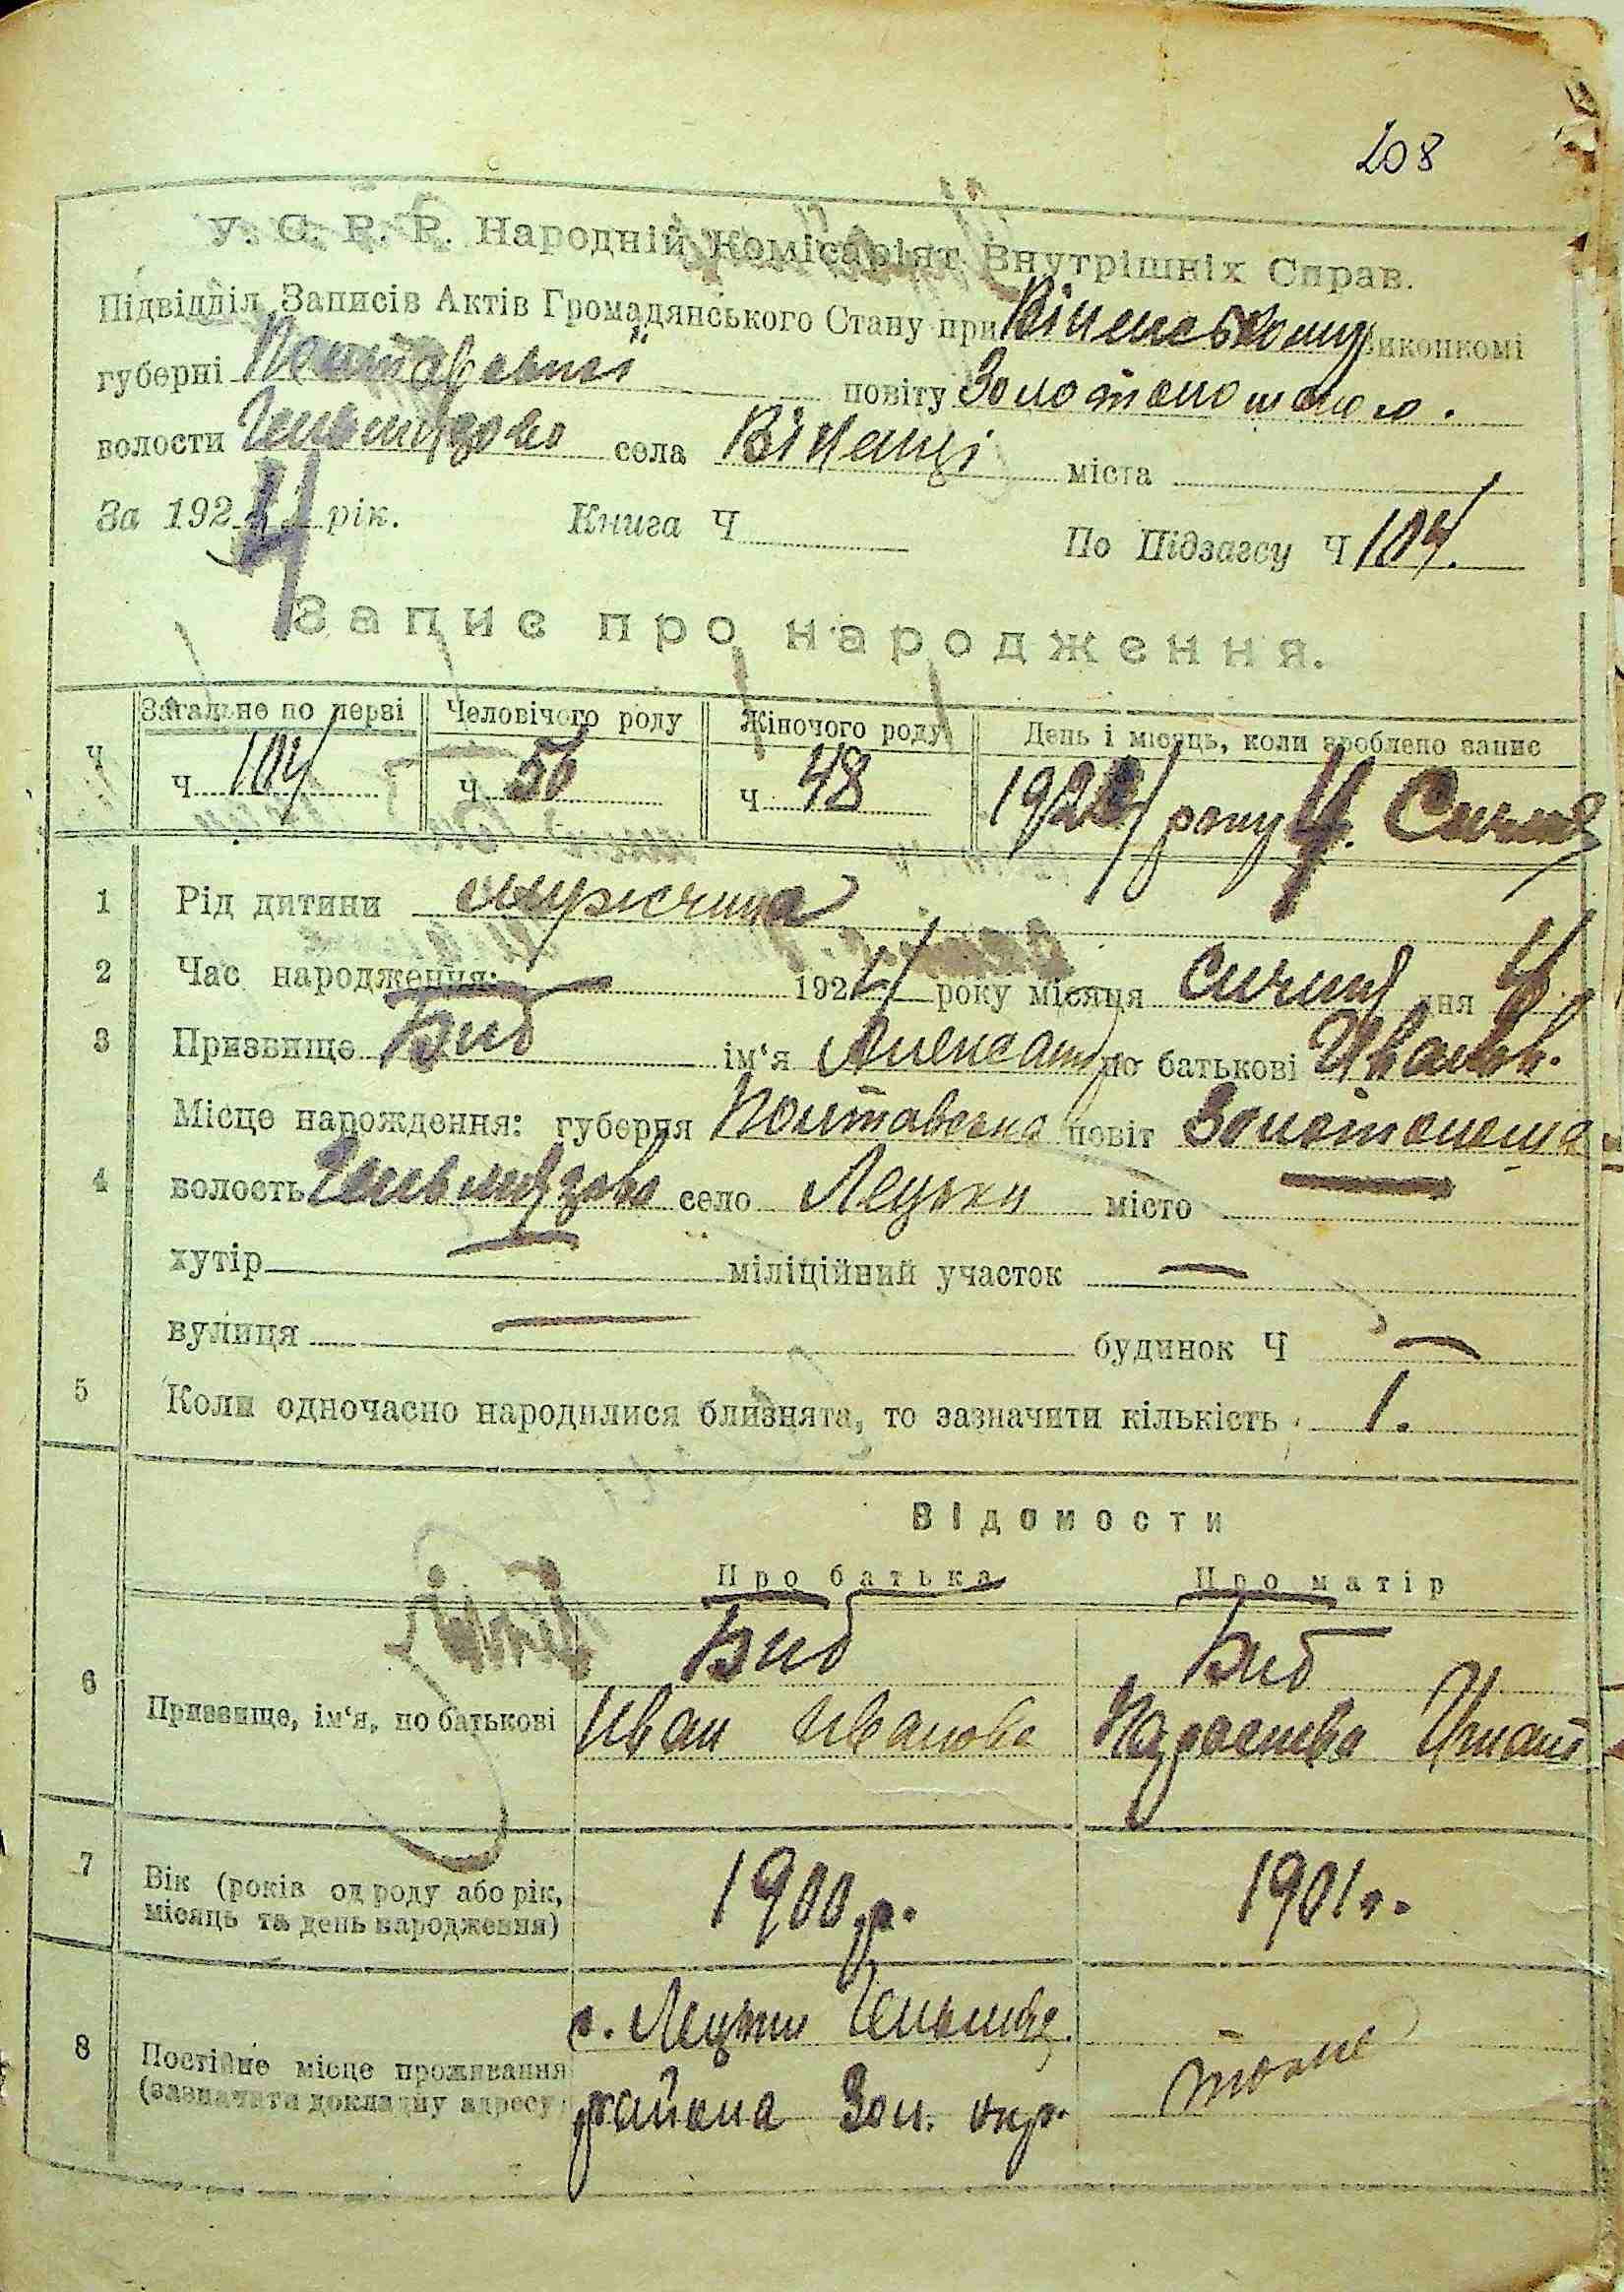 208
У. С. Р. Р. Народній Комісаріят Внутрішніх Справ.
Підвідділ Записів Актів Громадянського Стану при Віненському Виконкомі
губерні Полтавської повіту Золотоношського.
волости Гельмязово села Віненці міста
За 1924 рік. Книга Ч По Підзагсу Ч 104.
Запис про народження.
Загальне по черзі Человічого роду Жіночого роду День і місяць, коли зроблено запис
Ч Ч 104 Ч 56 Ч 48 1924 року 4. Січня
1 Рід дитини мужчина
2 Час народження: 1924 року місяця Січня дня 4
3 Призвище Биб ім'я Александ по батькові Иванов.
Місце нарождення: губерня Полтавська повіт Золотоноша
4 волость Гельмязово село Лецьки місто
хутір міліційний участок —
вулиця — будинок Ч —
5 Коли одночасно народилися близнята, то зазначити кількість 1.
Відомости
Про батька Про матір
Биб Биб
6 Призвище, ім'я, по батькові Иван Иванов Параскева Игнат
7 Вік (років од роду або рік, 1900 р. 1901 р.
місяць та день народження)
с. Лецьки Гельмяз.
8 Постійне місце проживання тоже
(зазначити докладну адресу) района Зол. окр.